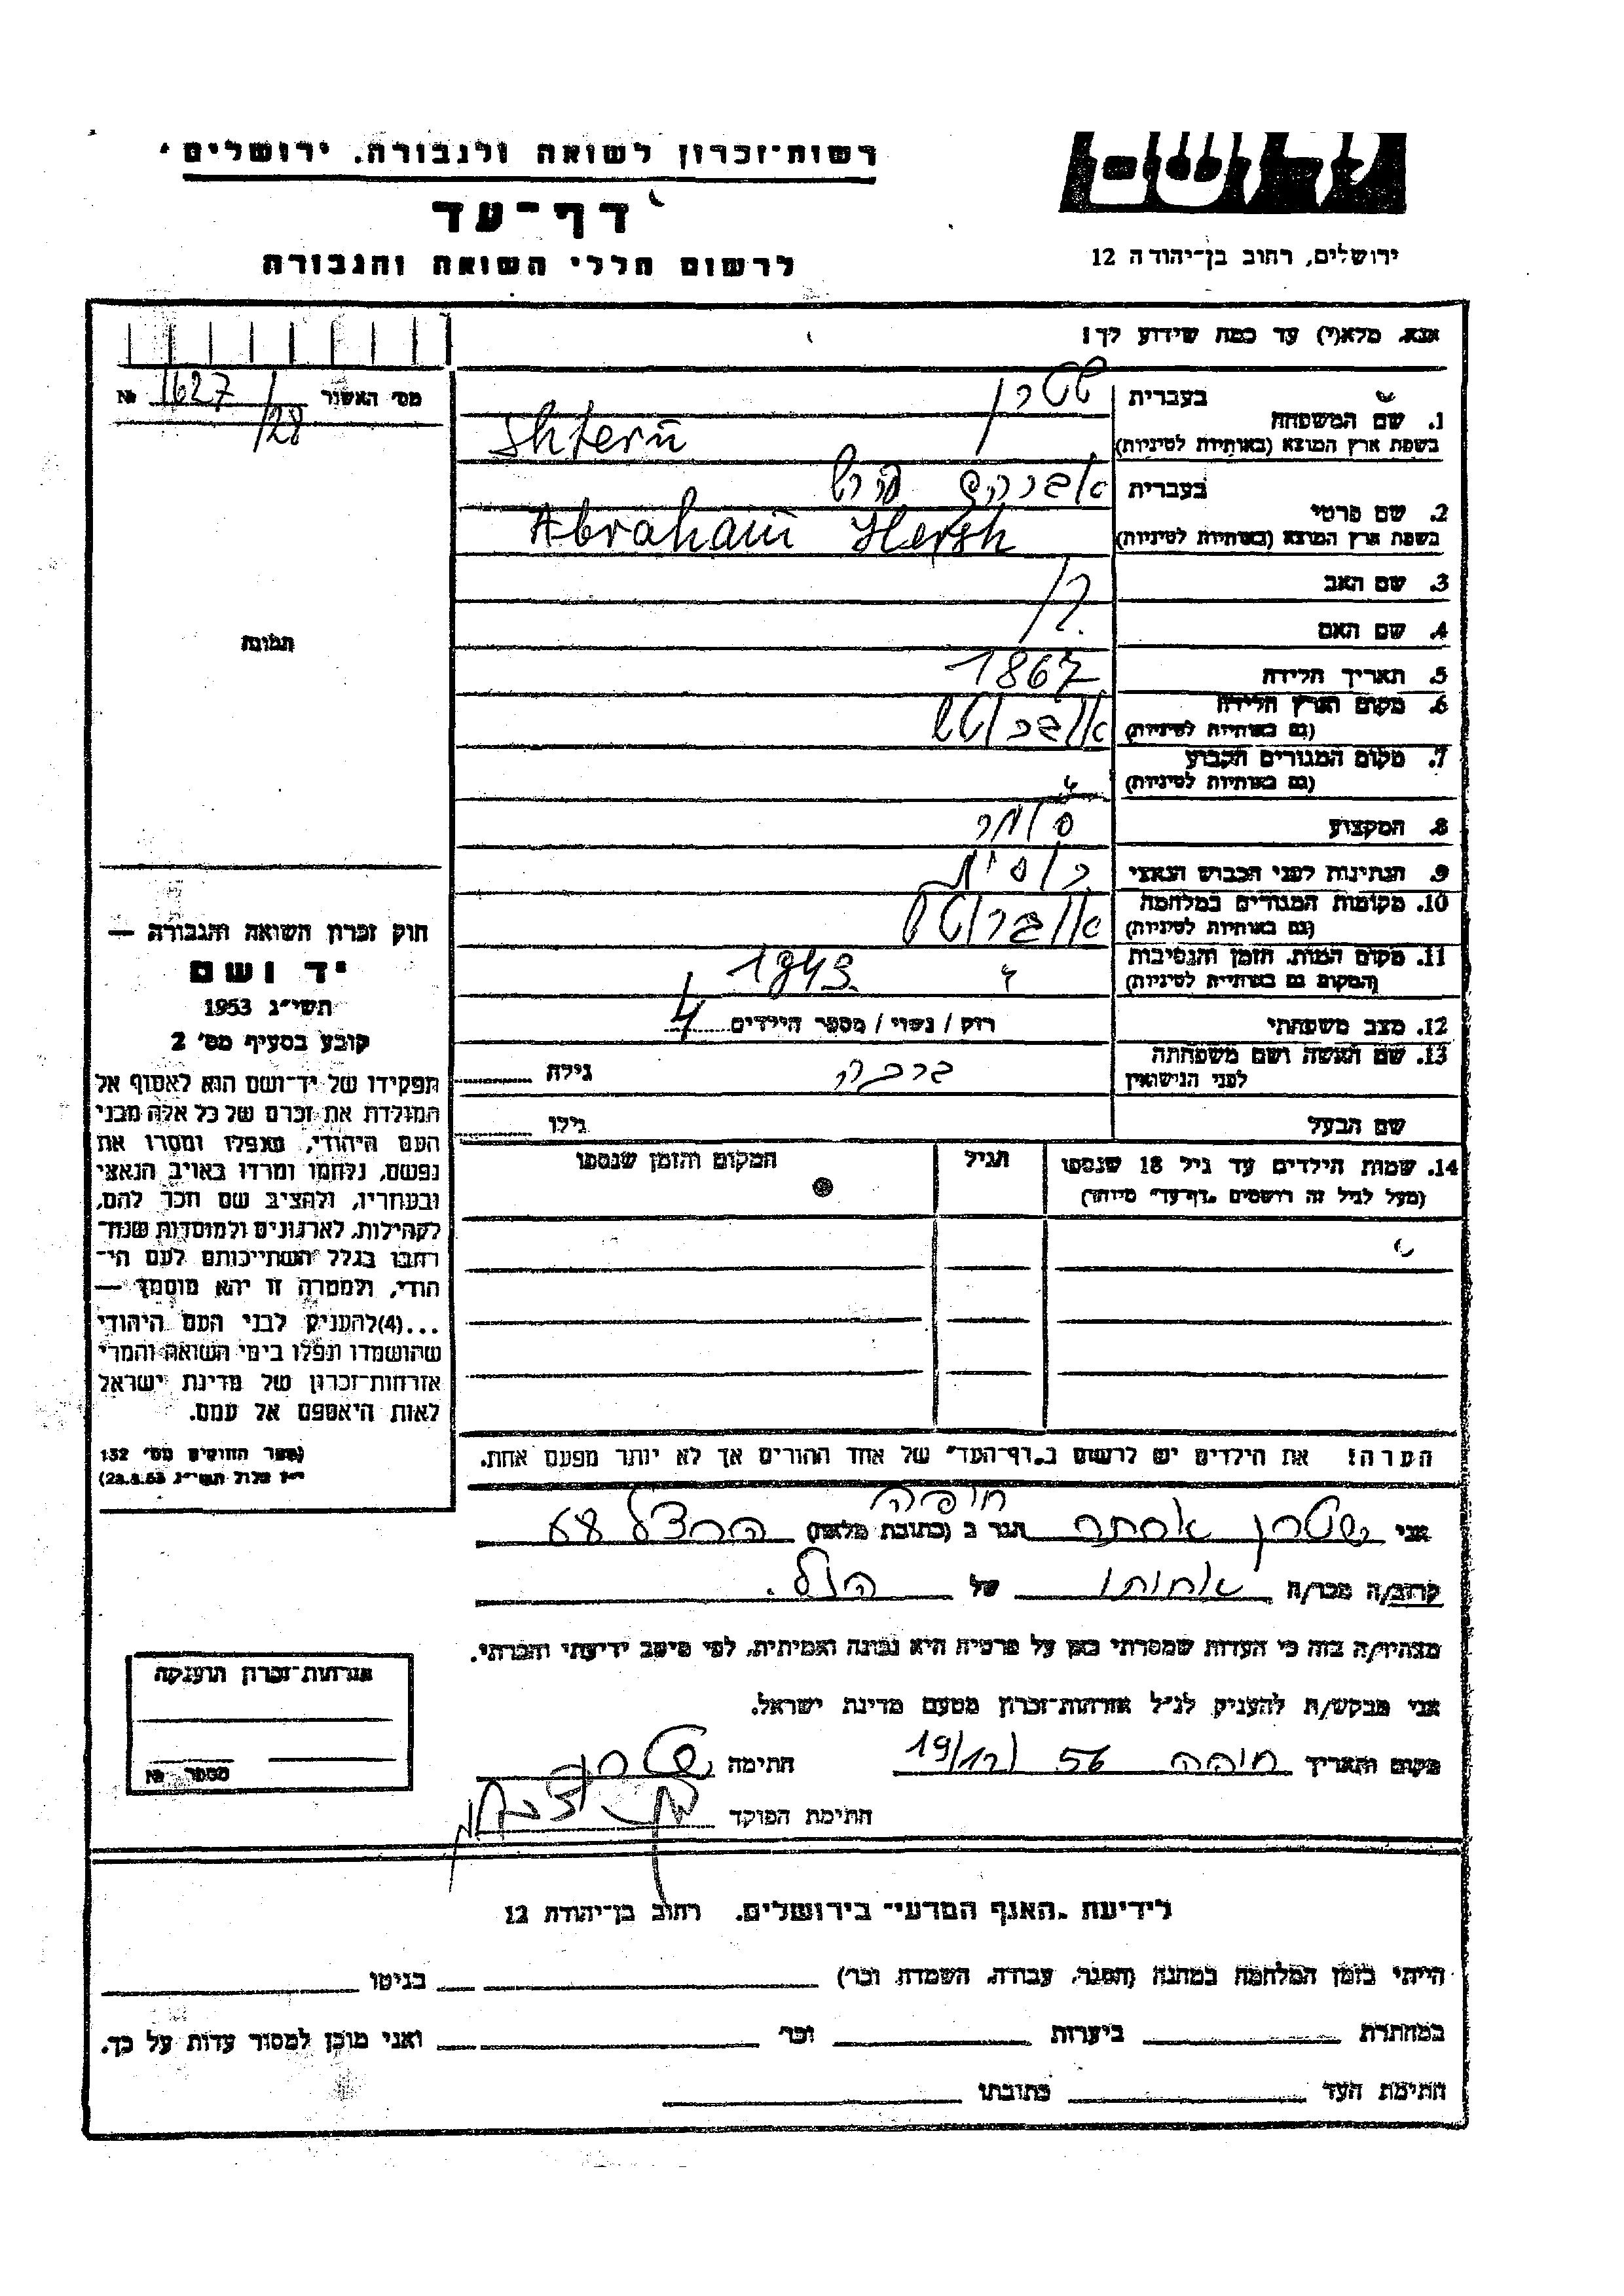 רשות־זכרון לשואה ולגבורה. ירושלים
דף־עד
לרשום חללי השואה והגבורה
ירושלים, רחוב בן־יהודה 12
אנא, מלא(י) עד כמה שידוע לך!
מס׳ האשור 1627/28 №
1. שם המשפחה
בעברית שטרן
בשפת ארץ המוצא (באותיות לטיניות) Shtern
2. שם פרטי
בעברית אברהם הרש
בשפת ארץ המוצא (באותיות לטיניות) Abraham Hersh
3. שם האב
4. שם האם
5. תאריך הלידה 1867
6. מקום וארץ הלידה
(גם באותיות לטיניות)
7. מקום המגורים הקבוע
(גם באותיות לטיניות)
8. המקצוע סוחר
9. הנתינות לפני הכבוש הנאצי
10. מקומות המגורים במלחמה
(גם באותיות לטיניות)
11. מקום המות, הזמן והנסיבות 1943
(המקום גם באותיות לטיניות)
12. מצב משפחתי רוק / נשוי / מספר הילדים 4
13. שם האשה ושם משפחתה
לפני הנישואין ברכה גילה
שם הבעל גילו
14. שמות הילדים עד גיל 18 שנספו
(מעל לגיל זה רושמים "דף־עד" מיוחד)
הגיל
המקום והזמן שנספו
הערה! את הילדים יש לרשום ב"דף־העד" של אחד ההורים אך לא יותר מפעם אחת.
תמונה
חוק זכרון השואה והגבורה —
יד ושם
תשי״ג 1953
קובע בסעיף מס׳ 2
תפקידו של יד־ושם הוא לאסוף אל
המולדת את זכרם של כל אלה מבני
העם היהודי, שנפלו ומסרו את
נפשם, נלחמו ומרדו באויב הנאצי
ובעוזריו, ולהציב שם וזכר להם,
לקהילות, לארגונים ולמוסדות שנח־
רבו בגלל השתייכותם לעם הי־
הודי, ולמטרה זו יהא מוסמך —
...(4) להעניק לבני העם היהודי
שהושמדו ונפלו בימי השואה והמרי
אזרחות־זכרון של מדינת ישראל
לאות היאספם אל עמם.
(ספר החוקים מס׳ 132
י״ז אלול תשי״ג 28.8.53)
חיפה
אני שטרן אסתר הגר ב (כתובת מלאה) הרצל 68
קרוב/ה מכר/ה אחותו של הנ״ל.
מצהיר/ה בזה כי העדות שמסרתי כאן על פרטיה היא נכונה ואמיתית, לפי מיטב ידיעתי והכרתי.
אני מבקש/ת להעניק לנ״ל אזרחות־זכרון מטעם מדינת ישראל.
מקום ותאריך חיפה 19/12 56 חתימה שטרן
חתימת הפוקד
אזרחות־זכרון הוענקה
מספר №
לידיעת "האגף המדעי" בירושלים. רחוב בן־יהודה 12
הייתי בזמן המלחמה במחנה (הסגר, עבודה, השמדה וכר׳) בגיטו
במחתרת ביערות וכר׳ ואני מוכן למסור עדות על כך.
חתימת העד כתובתו